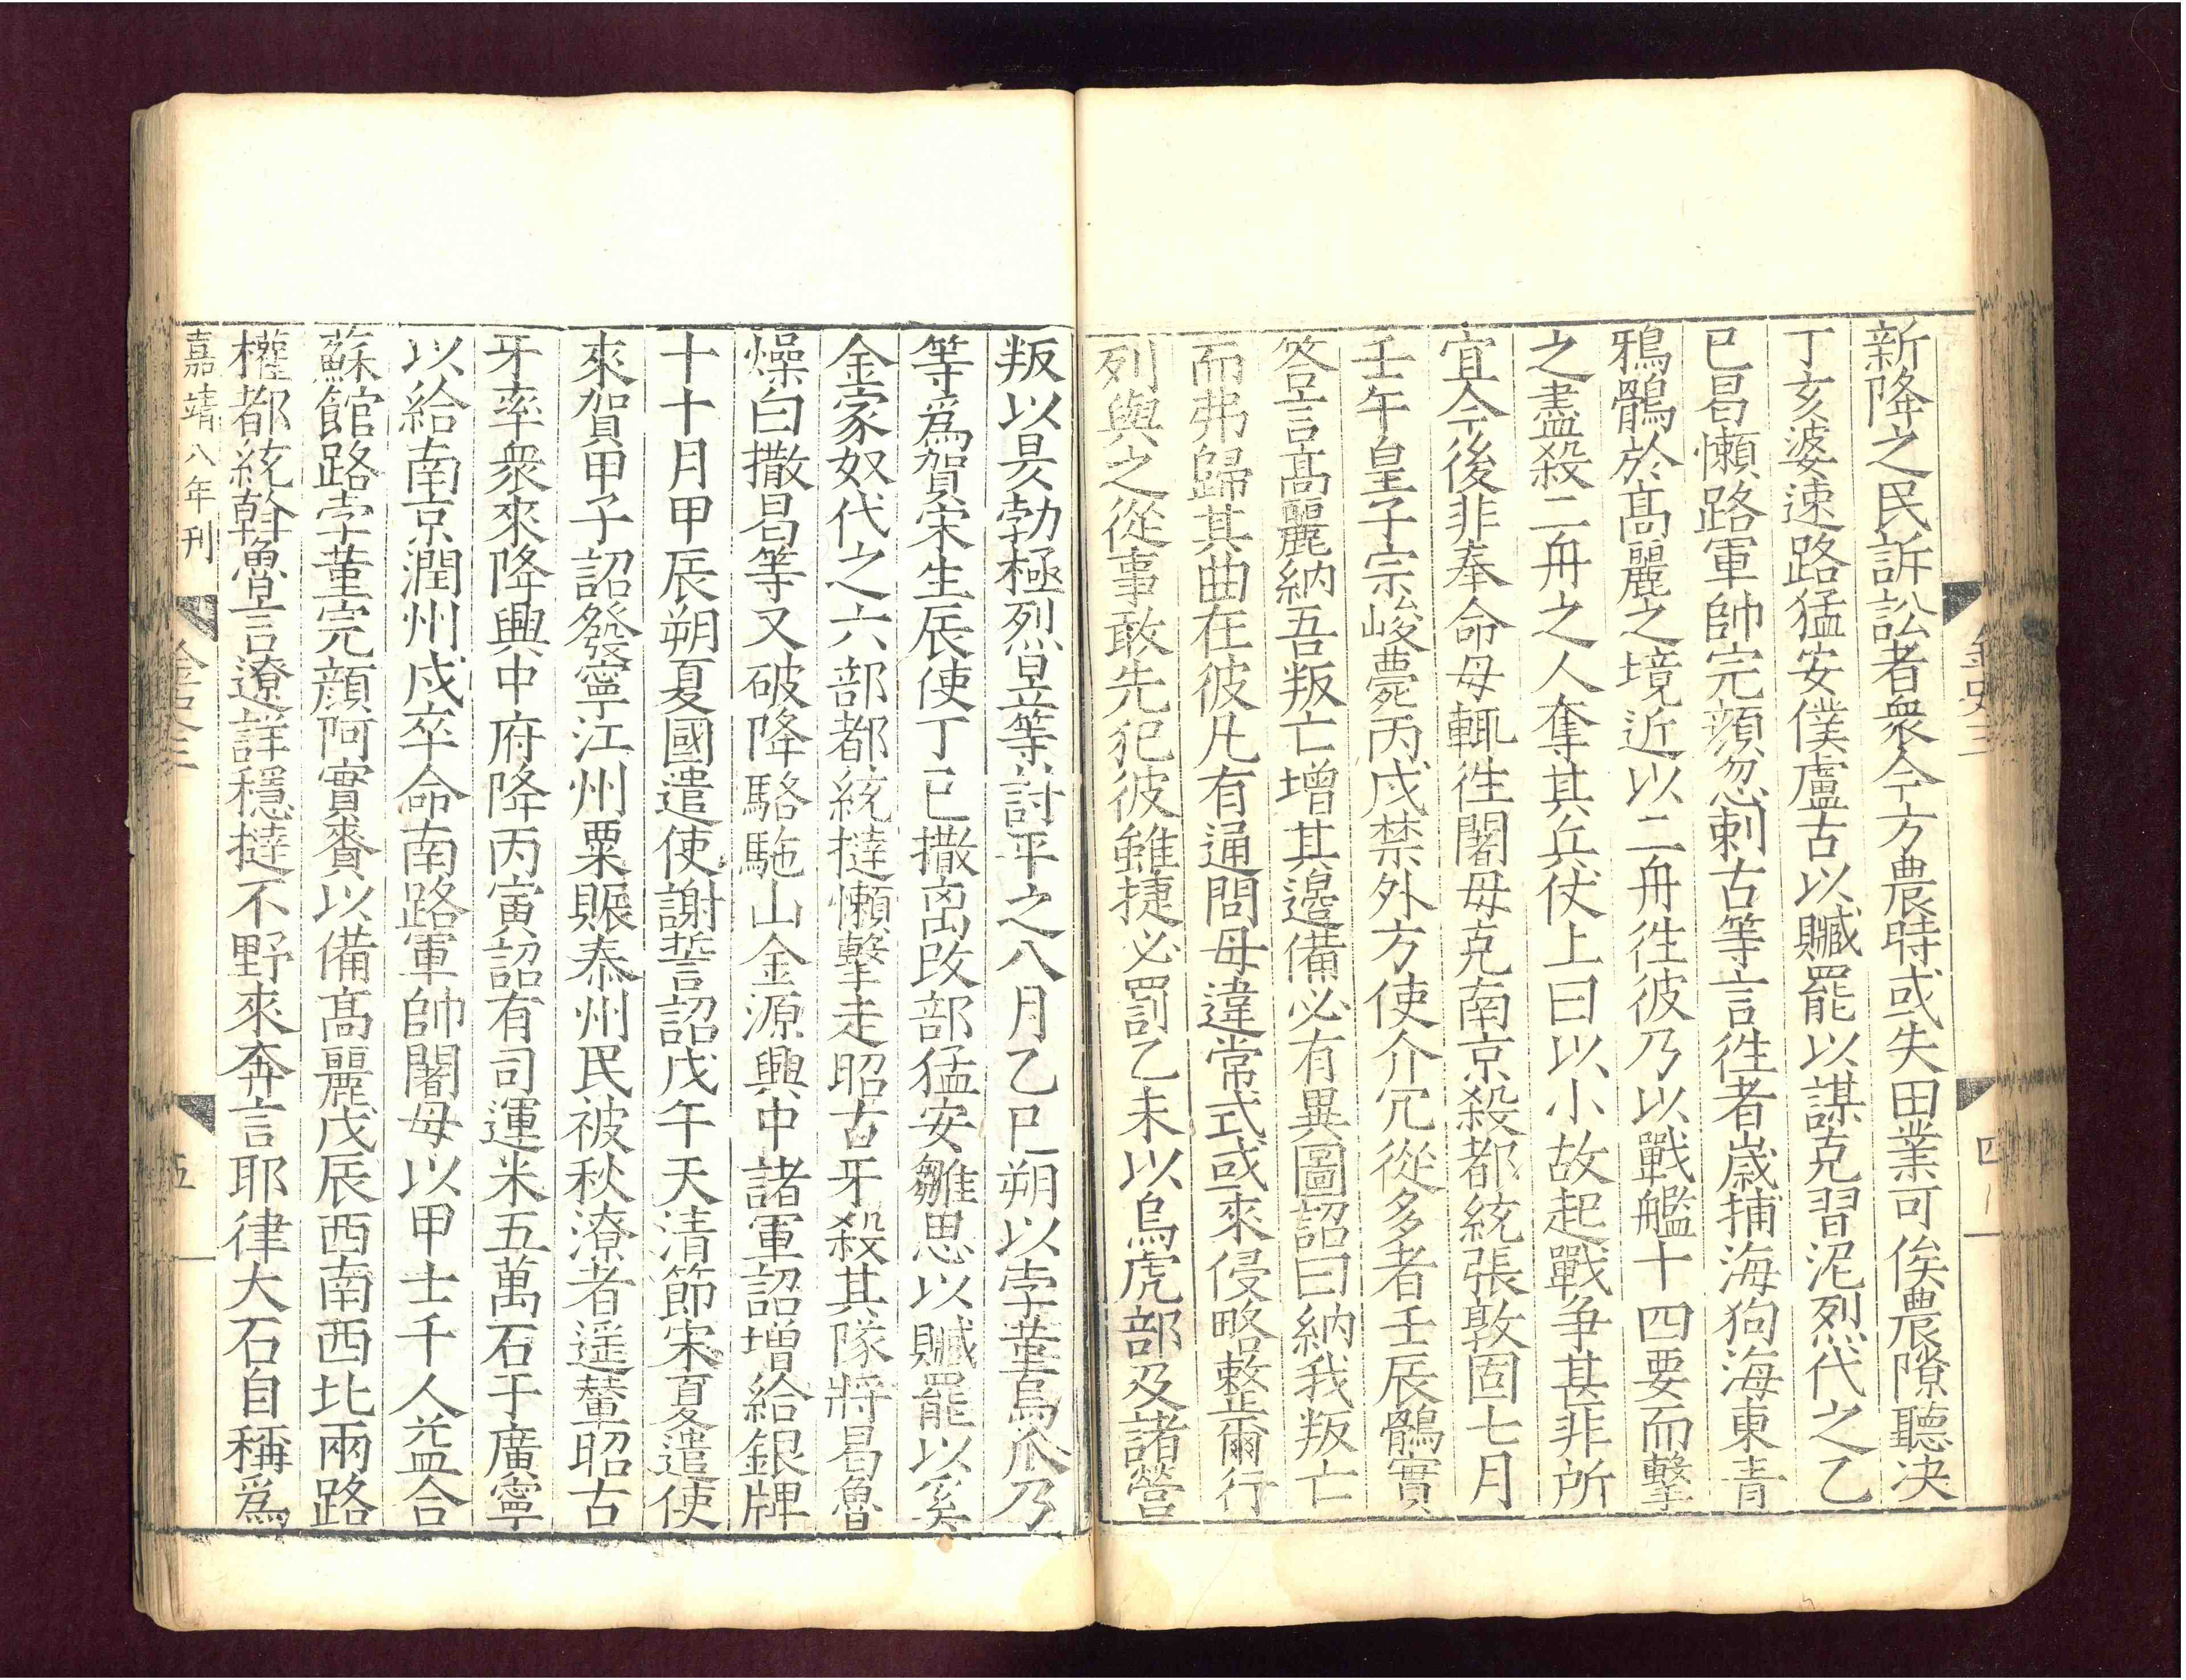 新降之民訴訟者衆今方農時或失田業可俟農隙聽决
丁亥婆速路猛安僕盧古以贓罷以謀克習泥烈代之乙
巳曷懶路軍帥完顔忽剌古等言徃者歲捕海狗海東青
鴉鶻於髙麗之境近以二舟徃彼乃以戰艦十四要而擊
之盡殺二舟之人奪其兵仗上曰以小故起戰争甚非所
宜今後非奉命毋輒徃闍毋克南京殺都統張敦固七月
壬午皇子宗峻薨丙戍禁外方使介冗從多者壬辰鶻實
答言髙麗納吾叛亡增其邊備必有異圖詔曰納我叛亡
而弗歸其曲在彼凡有通問毋違常式或來侵略整爾行
列與之從事敢先犯彼雖捷必罰乙未以烏虎部及諸營
叛以昃勃極烈昱等討平之八月乙巳朔以孛堇烏爪乃
等爲賀宋生辰使丁巳撒离改部猛安雛思以贓罷以奚
金家奴代之六部都統撻懶擊走昭古牙殺其隊將曷魯
燥白撒曷等又破降駱駞山金源興中諸軍詔增給銀牌
十十月甲辰朔夏國遣使謝誓詔戊午天清節宋夏遣使
來賀甲子詔發寧江州粟賑泰州民被秋潦者遥輦昭古
牙率衆來降興中府降丙寅詔有司運米五萬石于廣寧
以給南京潤州戍卒命南路軍帥闍毋以甲士千人益合
蘇館路孛堇完顔阿實賚以備髙麗戊辰西南西北兩路
權都統斡魯言遼詳穩撻不野來奔言耶律大石自稱爲
嘉靖八年刊
金史三
四
金史三
五